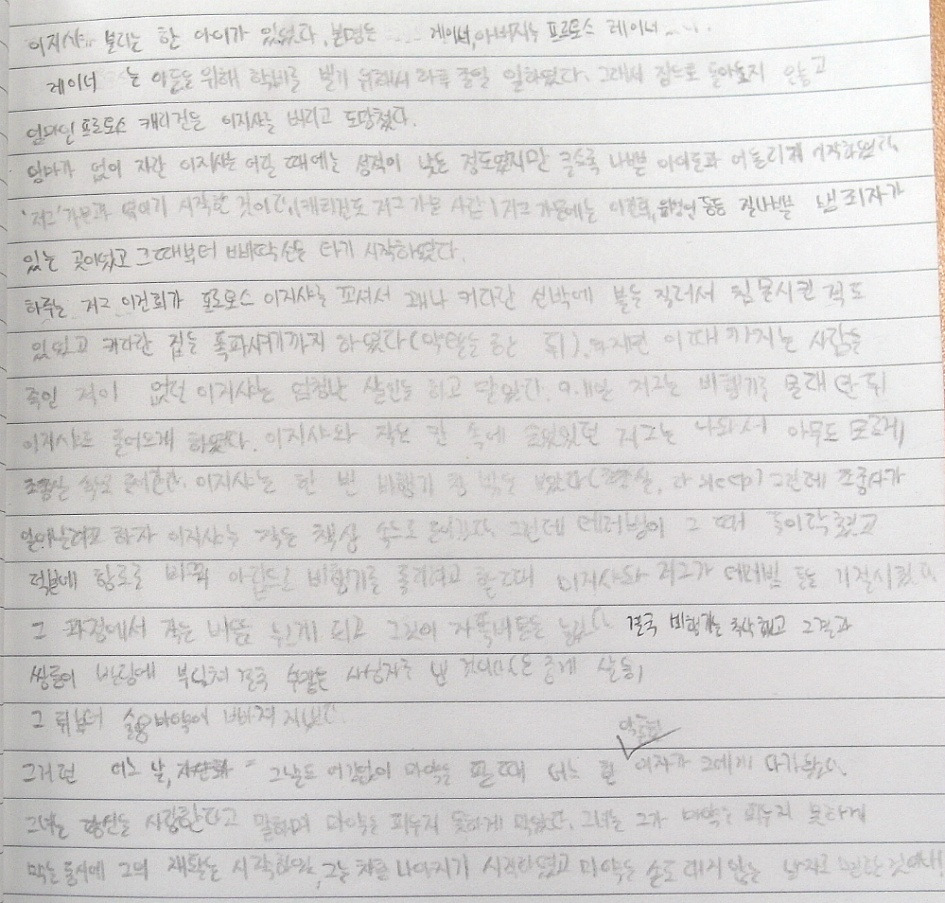 이지샤라 불리는 한 아이가 있었다. 본명은 .... 게이너, 아버지는 프로토스 레이너.....
레이너 는 아들을 위해 학비를 벌기 위해서 하루 종일 일하였다. 그래서 집으로 돌아오지 않고
엄마인 프로토스 캐리건은 이지샤를 버리고 도망쳤다.
엄마가 없이 자란 이지샤는 어릴 때에는 성적이 낮은 정도였지만 클수록 나쁜 아이들과 어울리게 시작하였다.
'저그'가문과 엮이기 시작한 것이다. (캐리건도 저그 가문 사람) 저그 가문에는 이건희, 등등 질나쁜 범죄자가
있는 곳이었고 그때부터 삐딱선을 타기 시작하였다.
하루는 저그 이건희가 프로토스 이지샤를 꼬셔서 꽤나 커다란 선박에 불을 질러서 침몰시킨 적도
있었고 커다란 집을 폭파시키기까지 하였다 (약탈을 한 뒤). 하지만 이때까지는 사람을
죽인 적이 없던 이지샤는 엄청난 살인을 하고 말았다. 저그는 비행기를 몰래 탄 뒤
이지샤도 들어오게 하였다. 이지샤와 작은 칸 속에 숨어있던 저그는 나와서 아무도 모르게
조종실 속으로 들어갔다. 이지샤는 한 번 비행기 창 밖을 보았다 그런데 조종사가
일어나려고 하자 이지샤는 작은 책상 속으로 들어갔다. 그런데 테러범이 그 때 들이닥쳤고
덕분에 항로를 바꿔 비행기를 돌리려고 할 때 이지샤와 저그가 테러범 들을 기절시켰다.
그 과정에서 작은 버튼 눌리게 되고 그것이 자폭버튼을 눌렀다. 결국 비행기는 추락했고 그 결과
쌍둥이 빌딩에 부딪쳐 결국 수많은 사상자를 낸
그 뒤부터 술과 마약에 빠져 지냈다.
그러던 어느 날, 그날도 어김없이 마약을 팔 때 어느 한 여자가 그에게 다가왔다.
그녀는 당신을 사랑한다고 말하며 마약을 피우지 못하게 막았다. 그녀는 그가 마약을 피우지 못하게
막는 동시에 그의 재활은 시작하였 그는 차츰 나아지기 시작하였고 마약은 손도 대지 않는 남자로 변한 것이다